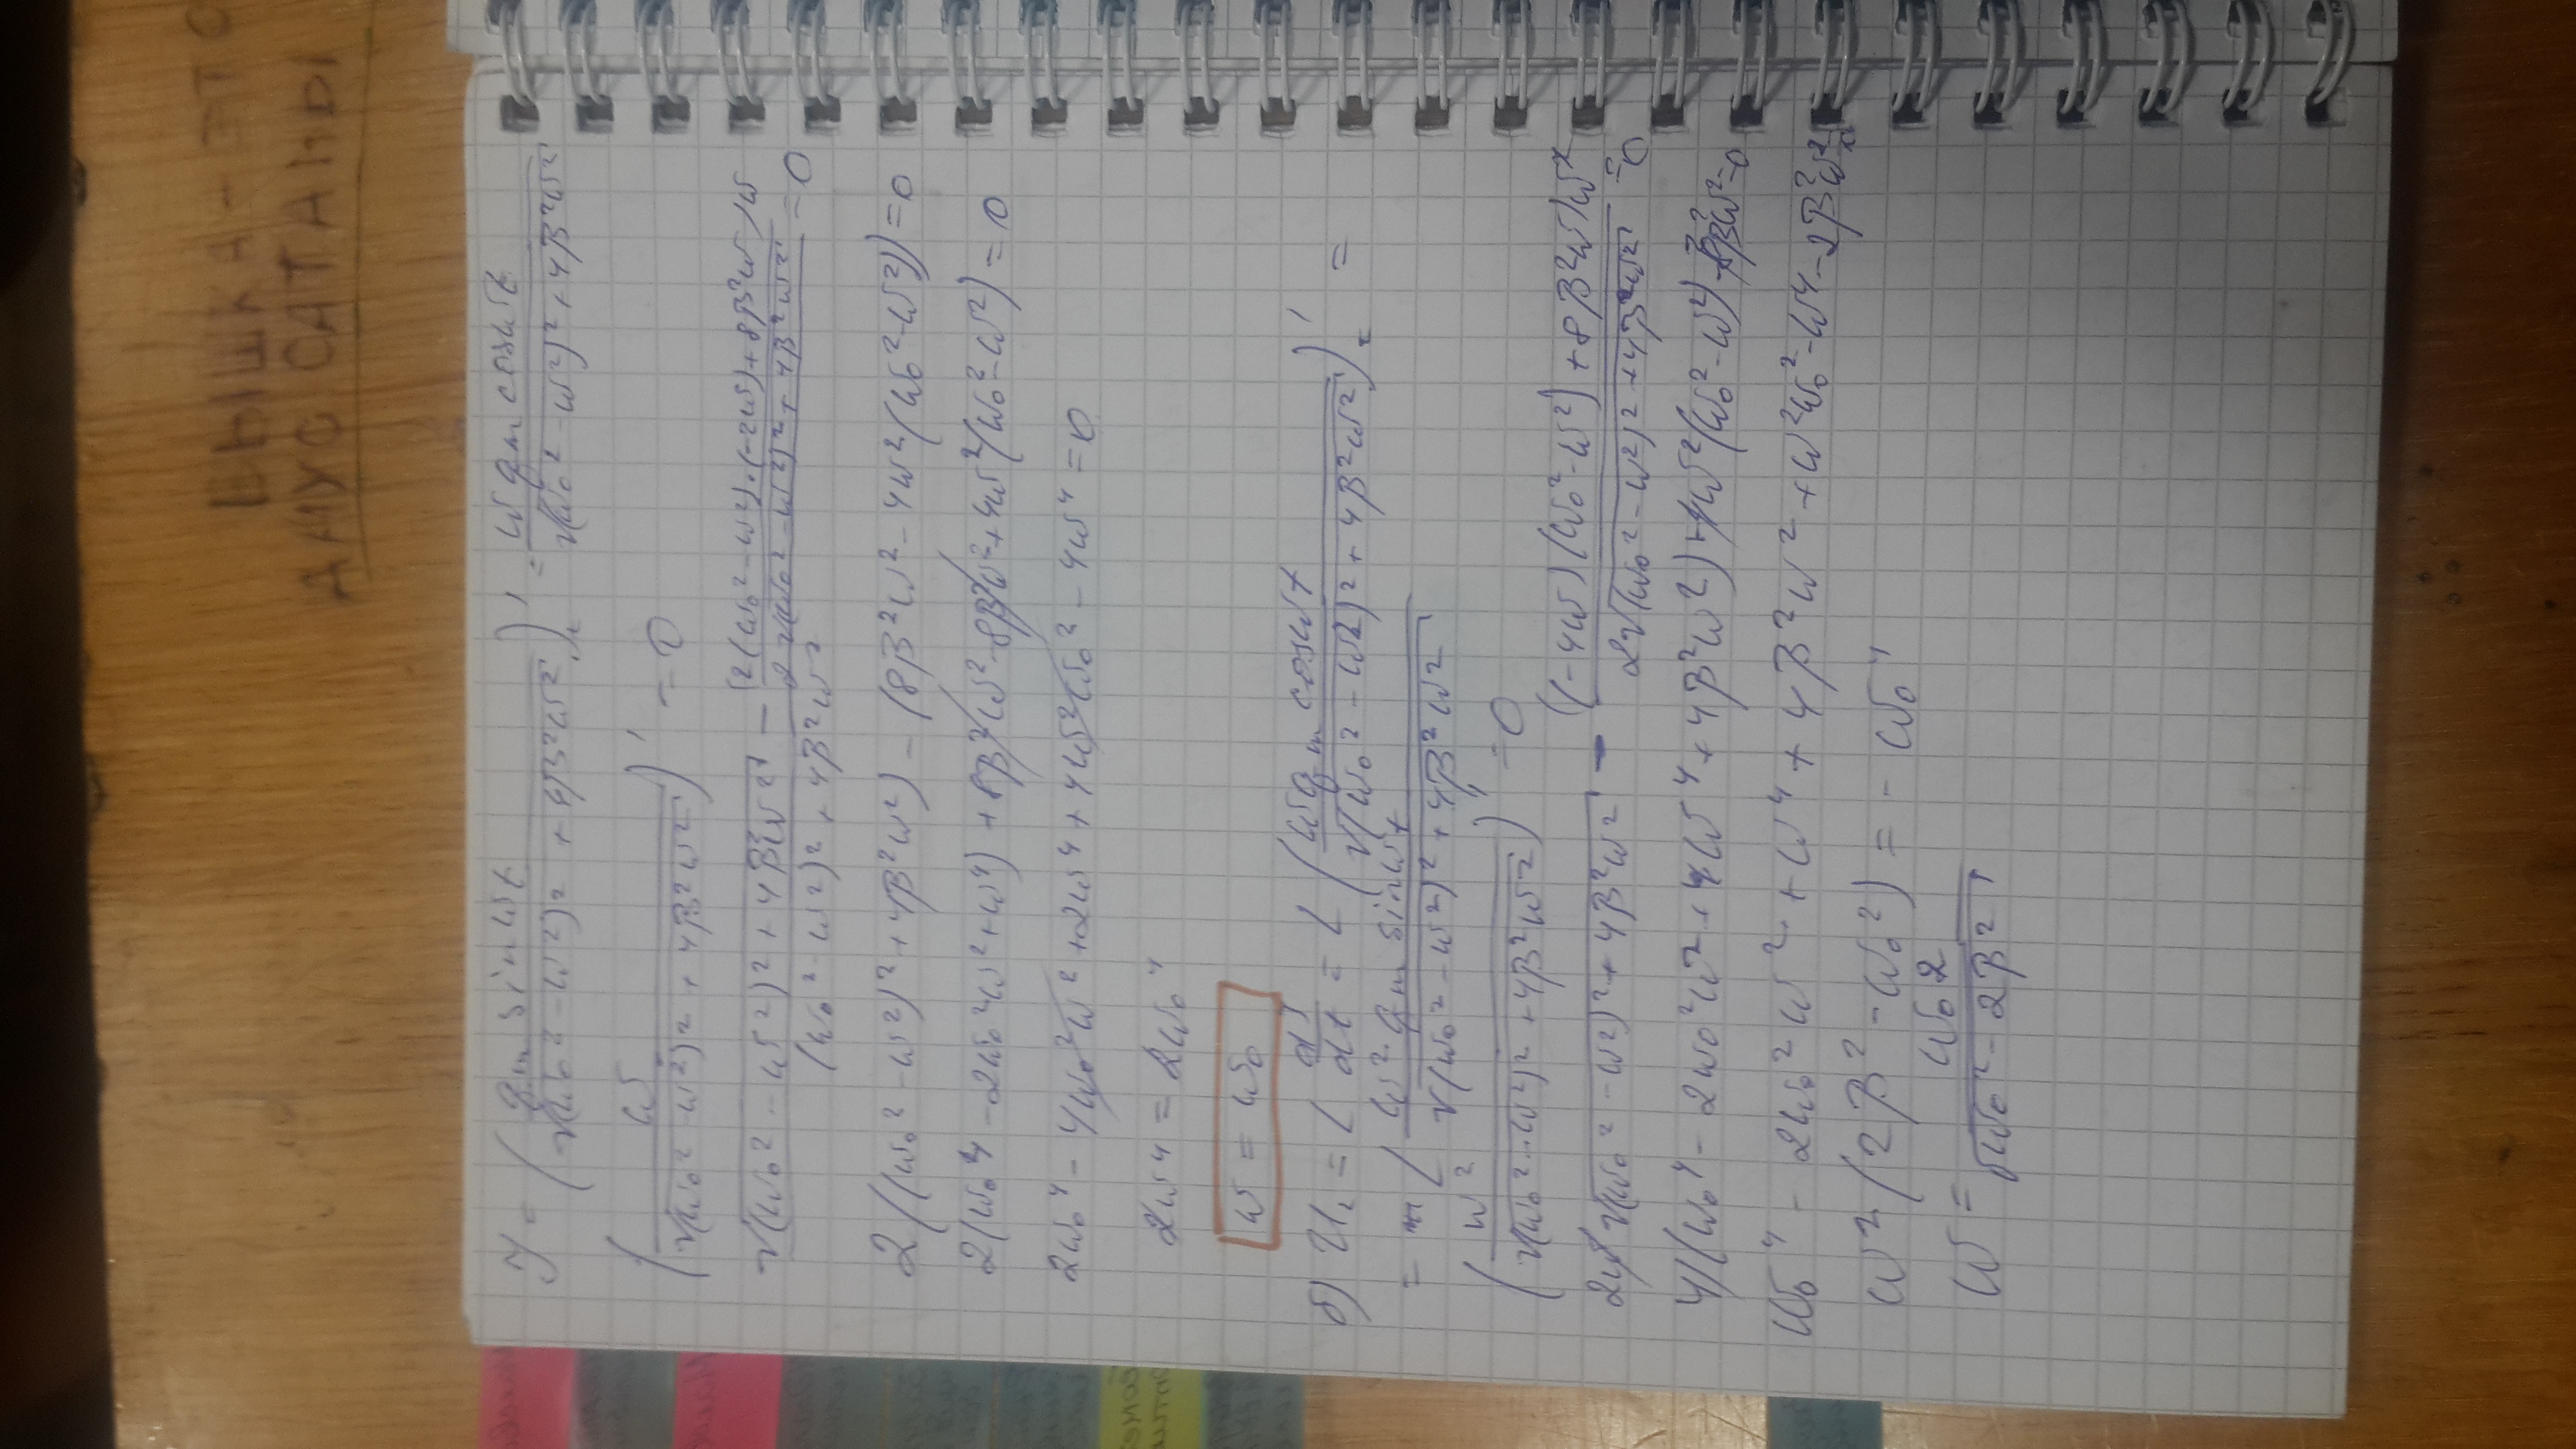 ВЫШКА - ЕТО
ДИУС САТАНЫ
J = (qm sinωt / √((ω₀² - ω²)² + 4β²ω²))'t = ωqm cosωt / √((ω₀² - ω²)² + 4β²ω²)
(ω / √((ω₀² - ω²)² + 4β²ω²))' = 0
(√((ω₀² - ω²)² + 4β²ω²) - (2(ω₀² - ω²)·(-2ω) + 8β²ω)ω / 2√((ω₀² - ω²)² + 4β²ω²)) / ((ω₀² - ω²)² + 4β²ω²) = 0
2((ω₀² - ω²)² + 4β²ω²) - (8β²ω² - 4ω²(ω₀² - ω²)) = 0
2(ω₀⁴ - 2ω₀²ω² + ω⁴) + 8β²ω² - 8β²ω² + 4ω²(ω₀² - ω²) = 0
2ω₀⁴ - 4ω₀²ω² + 2ω⁴ + 4ω²ω₀² - 4ω⁴ = 0
2ω⁴ = 2ω₀⁴
ω = ω₀
б) U_L = L dJ/dt = L (ωqm cosωt / √((ω₀² - ω²)² + 4β²ω²))'t =
= - L ω²qm sinωt / √((ω₀² - ω²)² + 4β²ω²)
(ω² / √((ω₀² - ω²)² + 4β²ω²))' = 0
2ω √((ω₀² - ω²)² + 4β²ω²) - ((-4ω)(ω₀² - ω²) + 8β²ω)ω² / 2√((ω₀² - ω²)² + 4β²ω²) = 0
4(ω₀⁴ - 2ω₀²ω² + ω⁴ + 4β²ω²) + 4ω²(ω₀² - ω²) - 8β²ω² = 0
ω₀⁴ - 2ω₀²ω² + ω⁴ + 4β²ω² + ω²ω₀² - ω⁴ - 2β²ω² =
ω²(2β² - ω₀²) = - ω₀⁴
ω = ω₀² / √(ω₀² - 2β²)